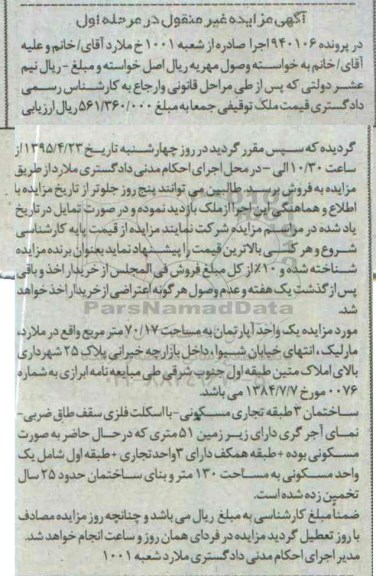 آگهی مزایده غیر منقول در مرحله اول
در پرونده ۹۴۰۱۰۶ اجرا صادره از شعبه ۱۰۰۱ خ ملارد آقای/خانم و علیه
آقای/خانم به خواسته وصول مهریه ریال اصل خواسته و مبلغ - ریال نیم
عشر دولتی که پس از طی مراحل قانونی و ارجاع به کارشناس رسمی
دادگستری قیمت ملک توقیفی جمعا به مبلغ ۵۶۱/۳۶۰/۰۰۰ ریال ارزیابی
گردیده که سپس مقرر گردید در روز چهارشنبه تاریخ ۱۳۹۵/۴/۲۳ از
ساعت ۱۰/۳۰ الی - در محل اجرای احکام مدنی دادگستری ملارد از طریق
مزایده به فروش برسد. طالبین می توانند پنج روز جلوتر از تاریخ مزایده با
اطلاع و هماهنگی این اجرا از ملک بازدید نموده و در صورت تمایل در تاریخ
یاد شده در مراسم مزایده شرکت نمایند مزایده از قیمت پایه کارشناسی
شروع و هر کسی بالاترین قیمت را پیشنهاد نماید بعنوان برنده مزایده
شناخته شده و ۱۰٪ از کل مبلغ فروش فی المجلس از خریدار اخذ و باقی
پس از گذشت یک هفته و عدم وصول هر گونه اعتراضی از خریدار اخذ خواهد
شد.
ParsNamadData
مورد مزایده یک واحد آپارتمان به مساحت ۷۰/۱۷ متر مربع واقع در ملارد،
مارلیک، انتهای خیابان شیوا، داخل بازارچه خیرانی پلاک ۲۵ شهرداری
بالای املاک متین طبقه اول جنوب شرقی طی مبایعه نامه ابرازی به شماره
۰۰۷۶ مورخ ۱۳۸۴/۷/۷ می باشد.
ساختمان ۳ طبقه تجاری مسکونی- با اسکلت فلزی سقف طاق ضربی-
نمای آجر گری دارای زیر زمین ۵۱ متری که در حال حاضر به صورت
مسکونی بوده + طبقه همکف دارای ۳ واحد تجاری + طبقه اول شامل یک
واحد مسکونی به مساحت ۱۳۰ متر و بنای ساختمان حدود ۲۵ سال
تخمین زده شده است.
ضمنا مبلغ کارشناسی به مبلغ ریال می باشد و چنانچه روز مزایده مصادف
با روز تعطیل گردید مزایده در فردای همان روز و ساعت انجام خواهد شد.
مدیر اجرای احکام مدنی دادگستری ملارد شعبه ۱۰۰۱